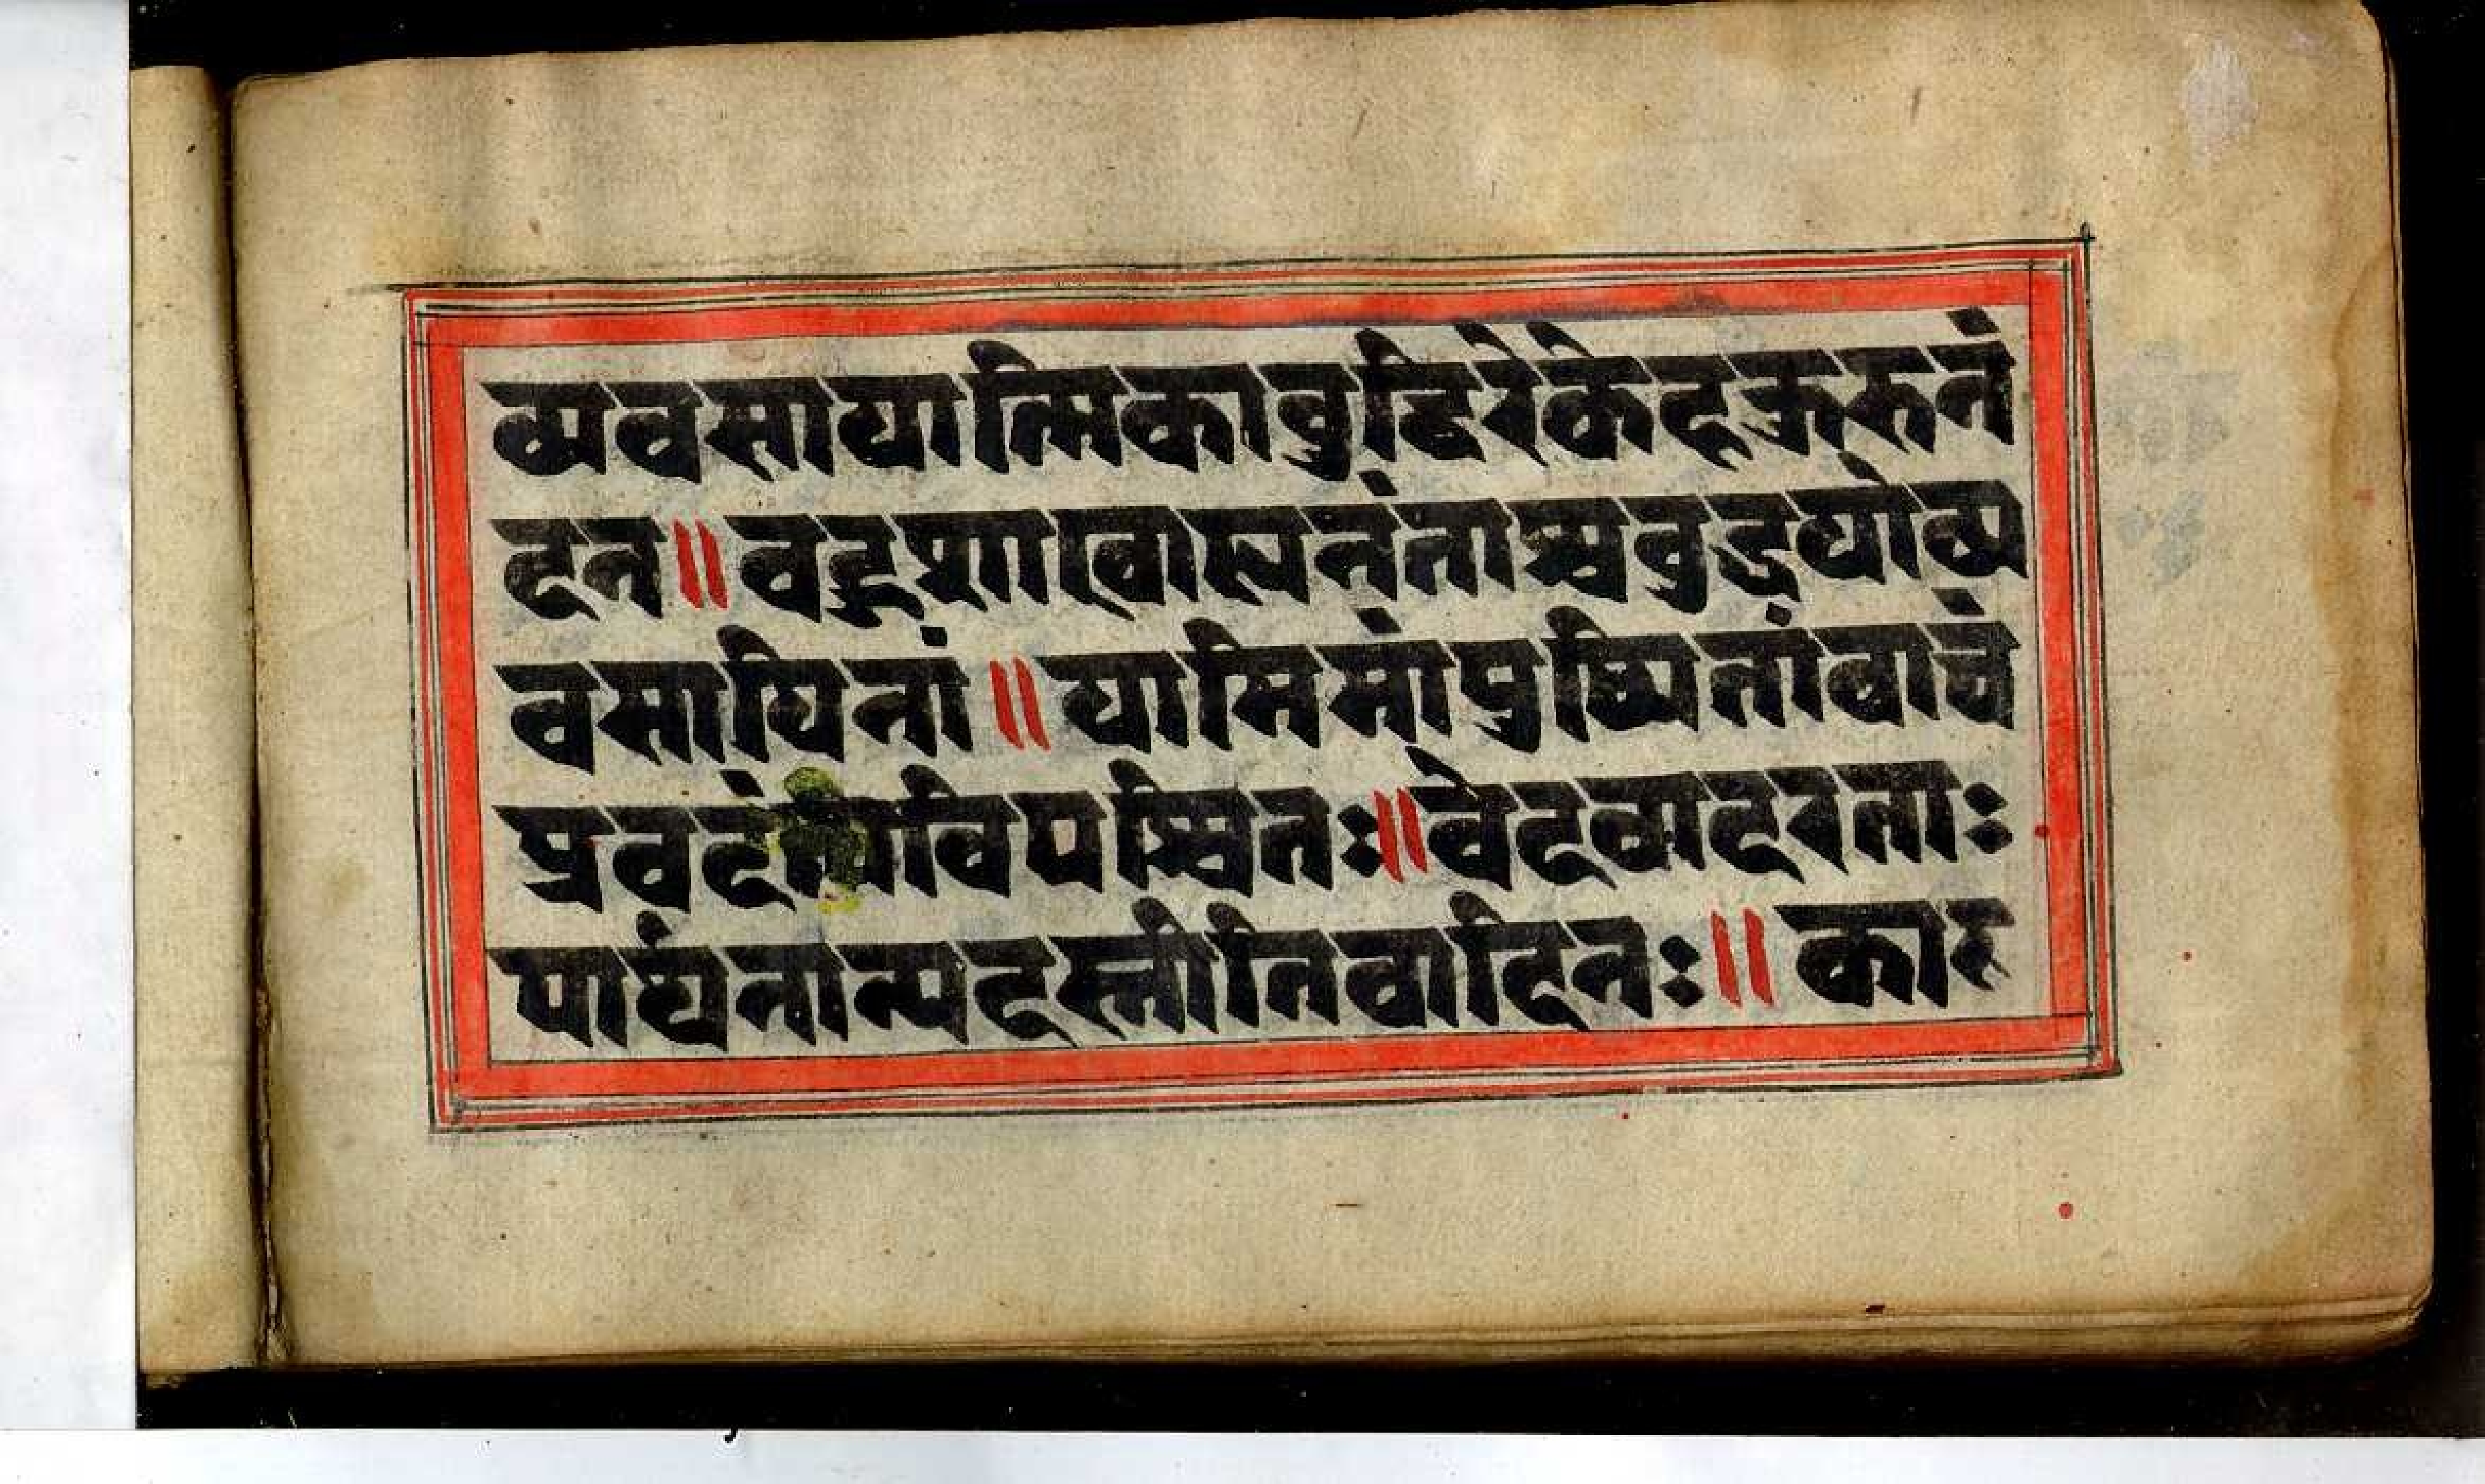 व्यवसायात्मिकावुद्धिरेकेदकुरुनं
दन॥वहुशाखाह्यनंताश्चवुद्धयोव्य
वसायिनां॥यामिमांपुष्पितांवाचं
प्रवदंत्यविपश्चितः॥वेदवादरताः
पार्थनान्यदस्तीतिवादिनः॥काम